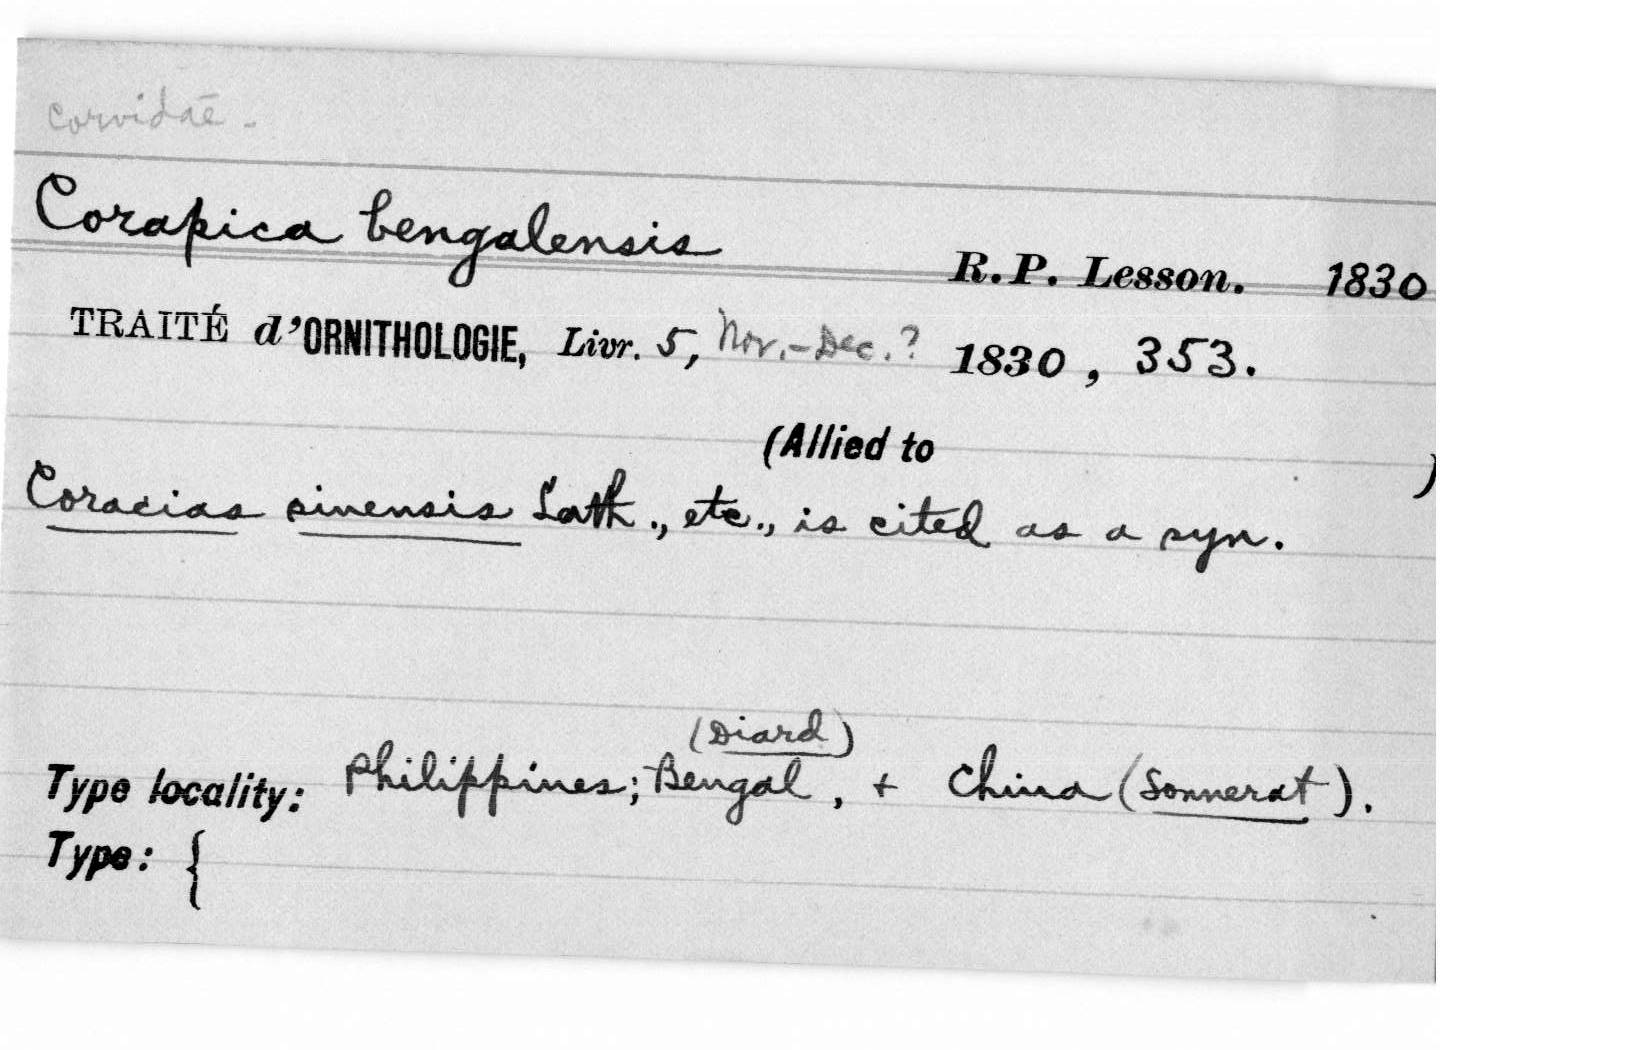 corvidae -
Corapica bengalensis R.P. Lesson. 1830
TRAITÉ d'ORNITHOLOGIE, Livr. 5, Nov.-Dec.? 1830, 353.
(Allied to )
Coracias sinensis Lath., etc., is cited as a syn.
(Diard)
Type locality: Philippines; Bengal, + China (Sonnerat).
Type: {